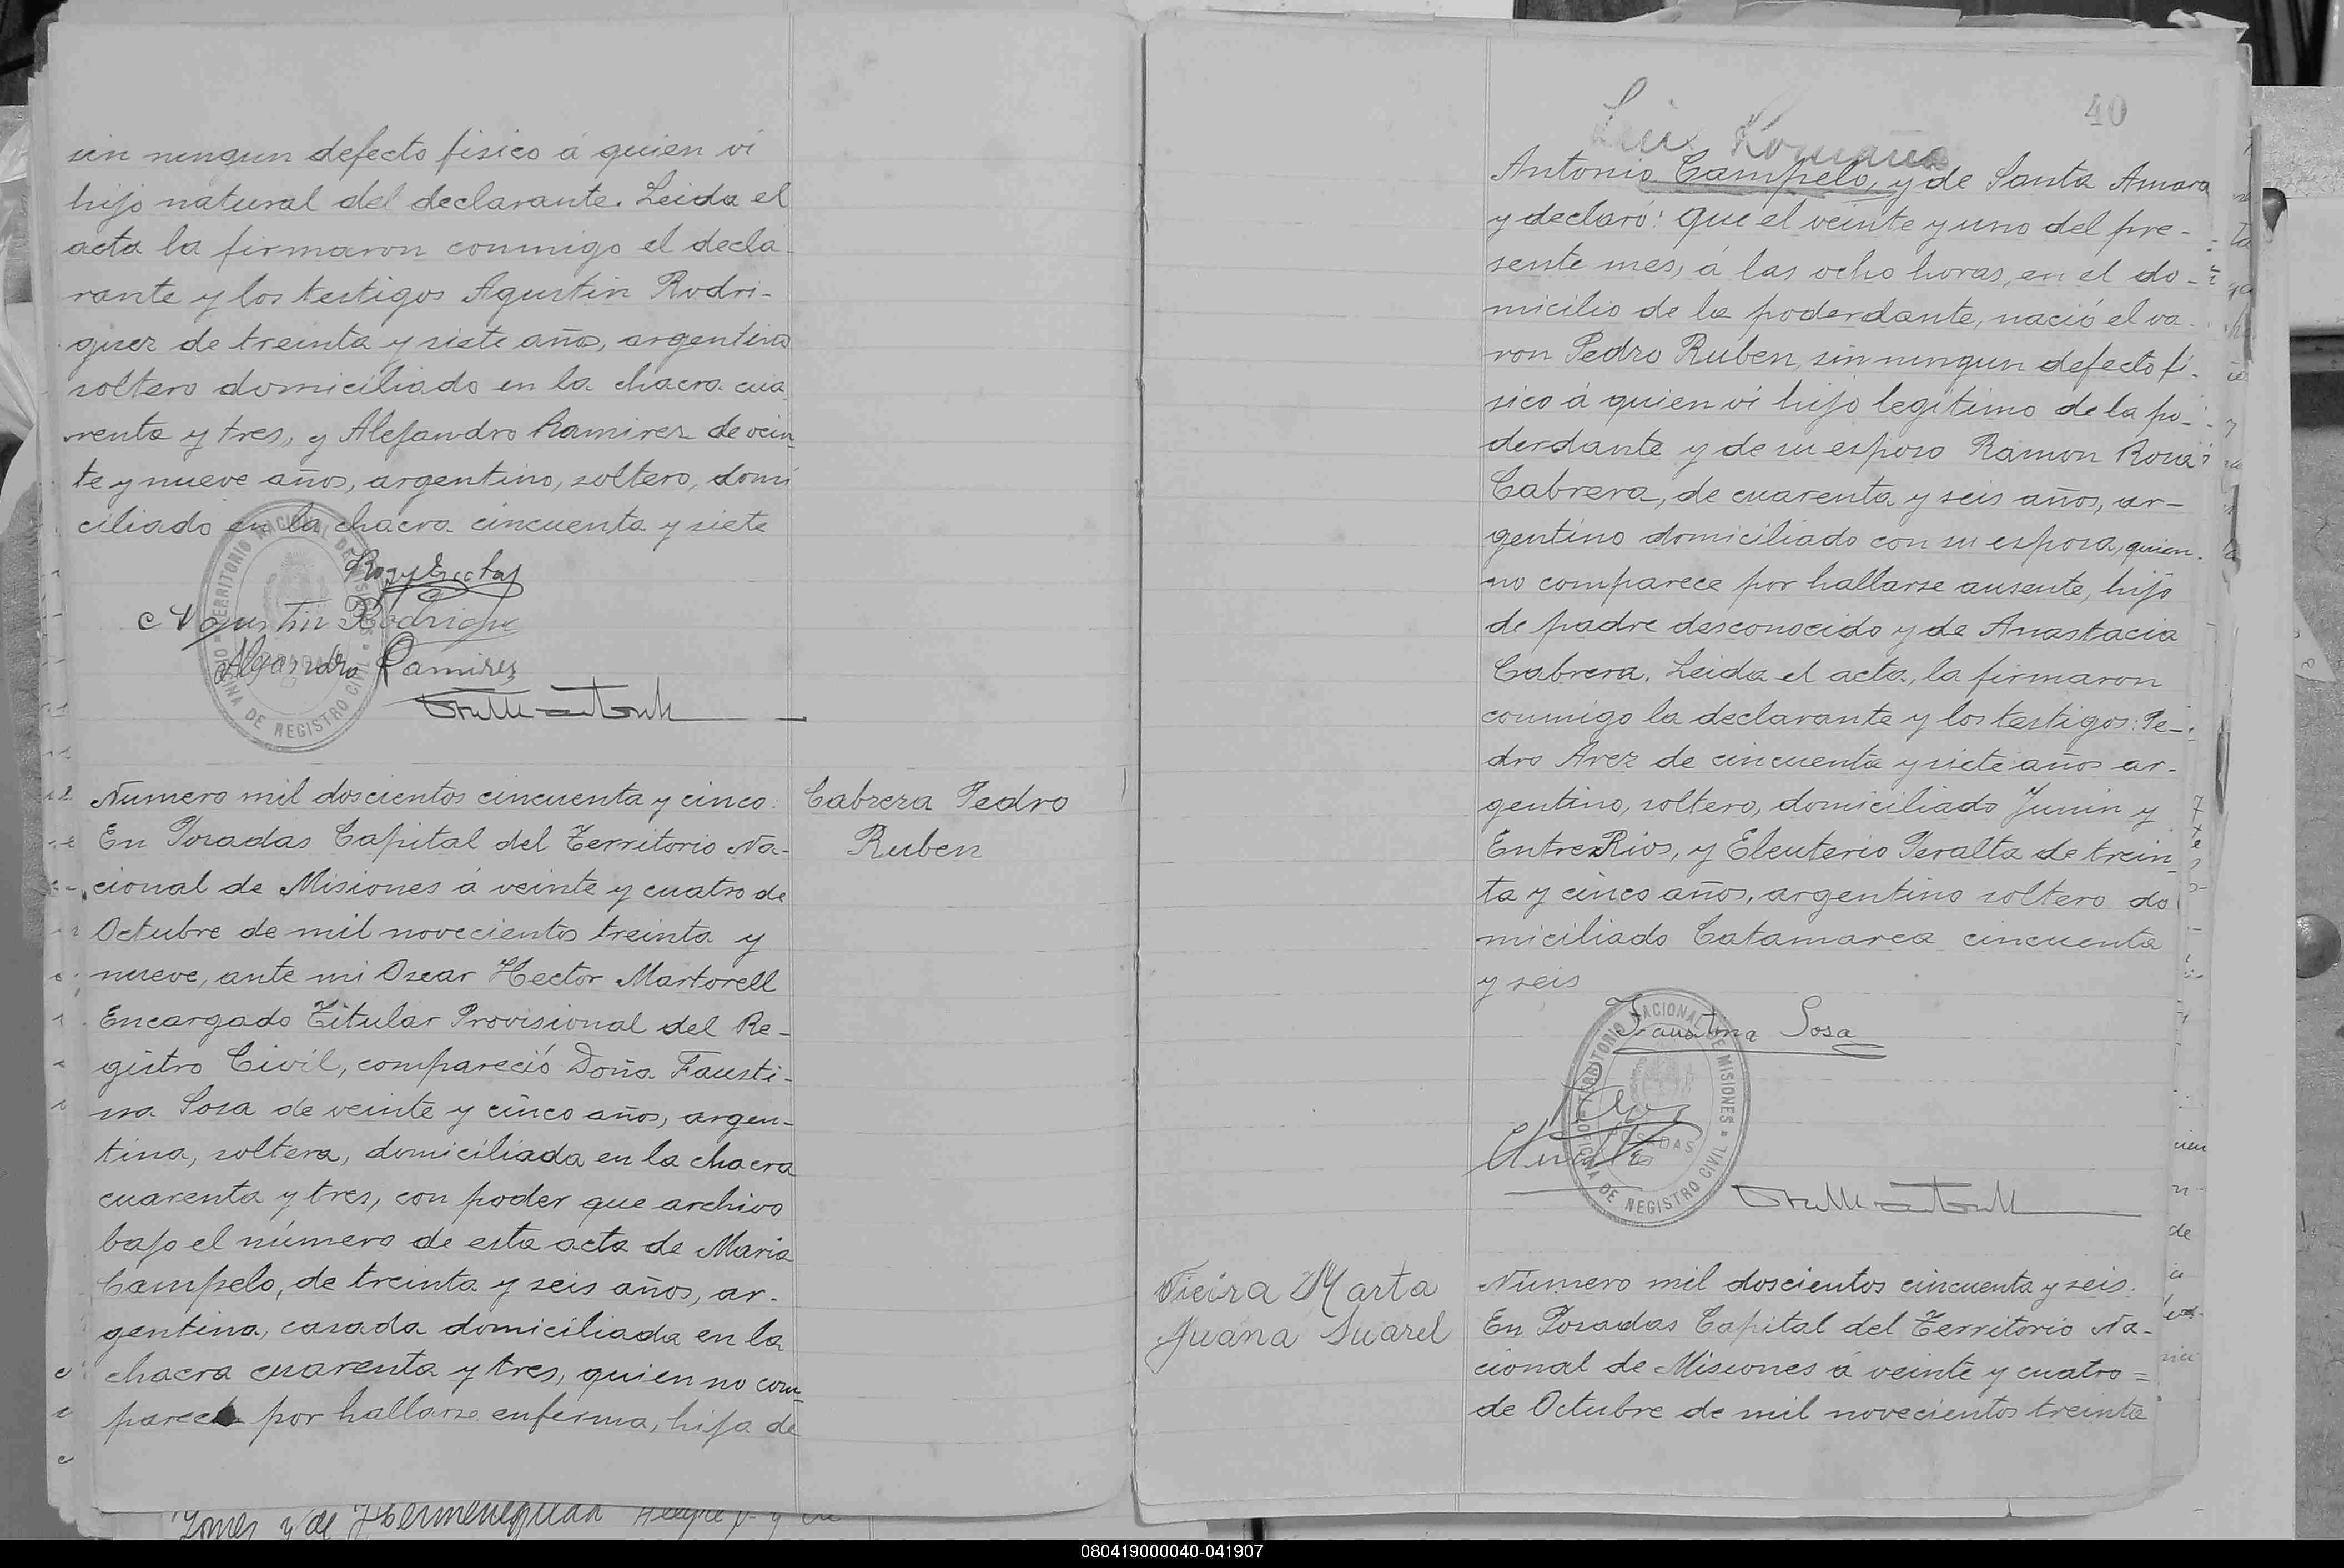 sin ningun defecto fisico á quien vi
hijo natural del declarante. Leida el
acta la firmaron conmigo el decla-
rante y los testigos Agustin Rodri-
guez de treinta y siete años, argentino
soltero domiciliado en la chacra cua
renta y tres, y Alejandro Ramirez de vein
te y nueve años, argentino, soltero, domi
ciliado en la chacra cincuenta y siete
Agustin Rodrigue
Alejandro Ramirez
TERRITORIO NACIONAL DE MISIONES
OFICINA DE REGISTRO CIVIL
POSADAS
Numero mil doscientos cincuenta y cinco:
En Posadas Capital del Territorio Na-
cional de Misiones á veinte y cuatro de
Octubre de mil novecientos treinta y
nueve, ante mi Oscar Hector Martorell
Encargado Titular Provisional del Re-
gistro Civil, compareció Doña Fausti-
na Sosa de veinte y cinco años, argen-
tina, soltera, domiciliada en la chacra
cuarenta y tres, con poder que archivo
bajo el número de esta acta de Maria
Campelo, de treinta y seis años, ar-
gentina, casada domiciliada en la
chacra cuarenta y tres, quien no com
parece por hallarse enferma, hija de
Cabrera Pedro
Ruben
Gomez y de Hermenegilda
40
Antonio Campelo, y de Santa Amara
y declaró: que el veinte y uno del pre-
sente mes, á las ocho horas, en el do-
micilio de la poderdante, nació el va-
ron Pedro Ruben, sin ningun defecto fi-
sico á quien vi hijo legitimo de la po-
derdante y de su esposo Ramon Rosa
Cabrera, de cuarenta y seis años, ar-
gentino domiciliado con su esposa, quien
no comparece por hallarse ausente, hijo
de padre desconocido y de Anastacia
Cabrera. Leida el acta, la firmaron
conmigo la declarante y los testigos: Pe-
dro Arez de cincuenta y siete años ar-
gentino, soltero, domiciliado Junin y
Entre Rios, y Eleuterio Peralta de trein
ta y cinco años, argentino soltero do
miciliado Catamarca cincuenta
y seis
Faustina Sosa
TERRITORIO NACIONAL DE MISIONES
OFICINA DE REGISTRO CIVIL
POSADAS
Vieira Marta
Juana Suarel
Número mil doscientos cincuenta y seis.
En Posadas Capital del Territorio Na-
cional de Misiones á veinte y cuatro =
de Octubre de mil novecientos treinta
080419000040-041907